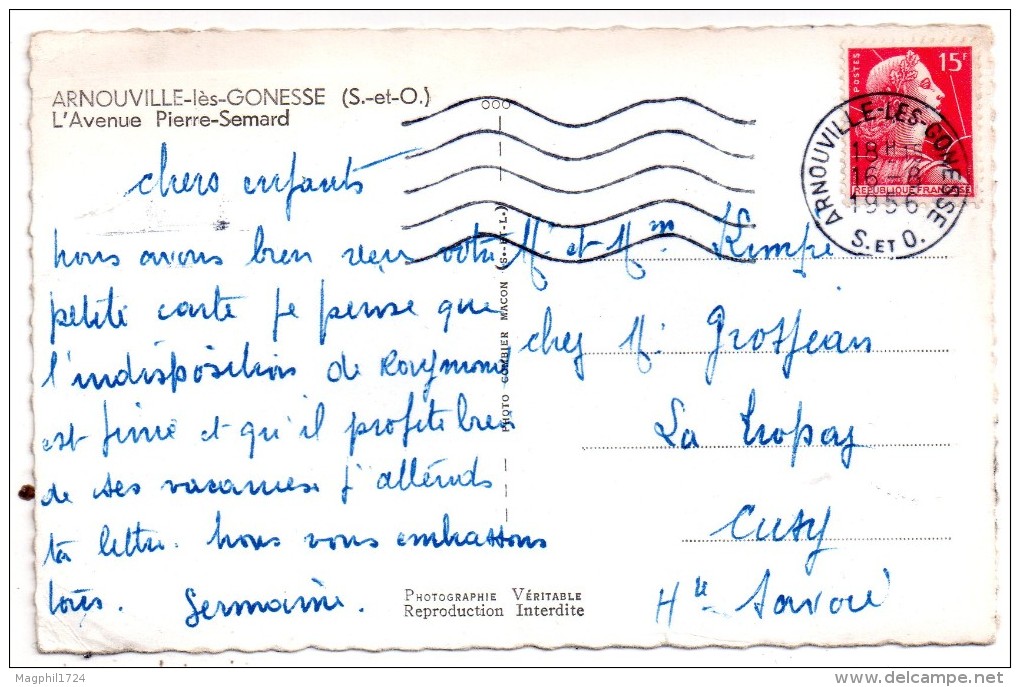 ARNOUVILLE-lès-GONESSE (S.-et-O.)
L'Avenue Pierre-Semard
chers enfants
nous avons bien reçu votre
petite carte je pense que
l'indisposition de Raymond
est finie et qu'il profite bien
de ses vacances. j'attends
ta lettre. nous vous embrassons
tous. Germaine.
PHOTO COMBIER MACON (S.-ET-L.)
PHOTOGRAPHIE VÉRITABLE
Reproduction Interdite
POSTES
15F
REPUBLIQUE FRANCAISE
ARNOUVILLE-LES-GONESSE
18H15
16-8
1956
S. ET O.
Mr et Mme Kempe
chez Mr. Grosjean
La
Cusy
Hte Savoie
Magphil1724
delcampe.net